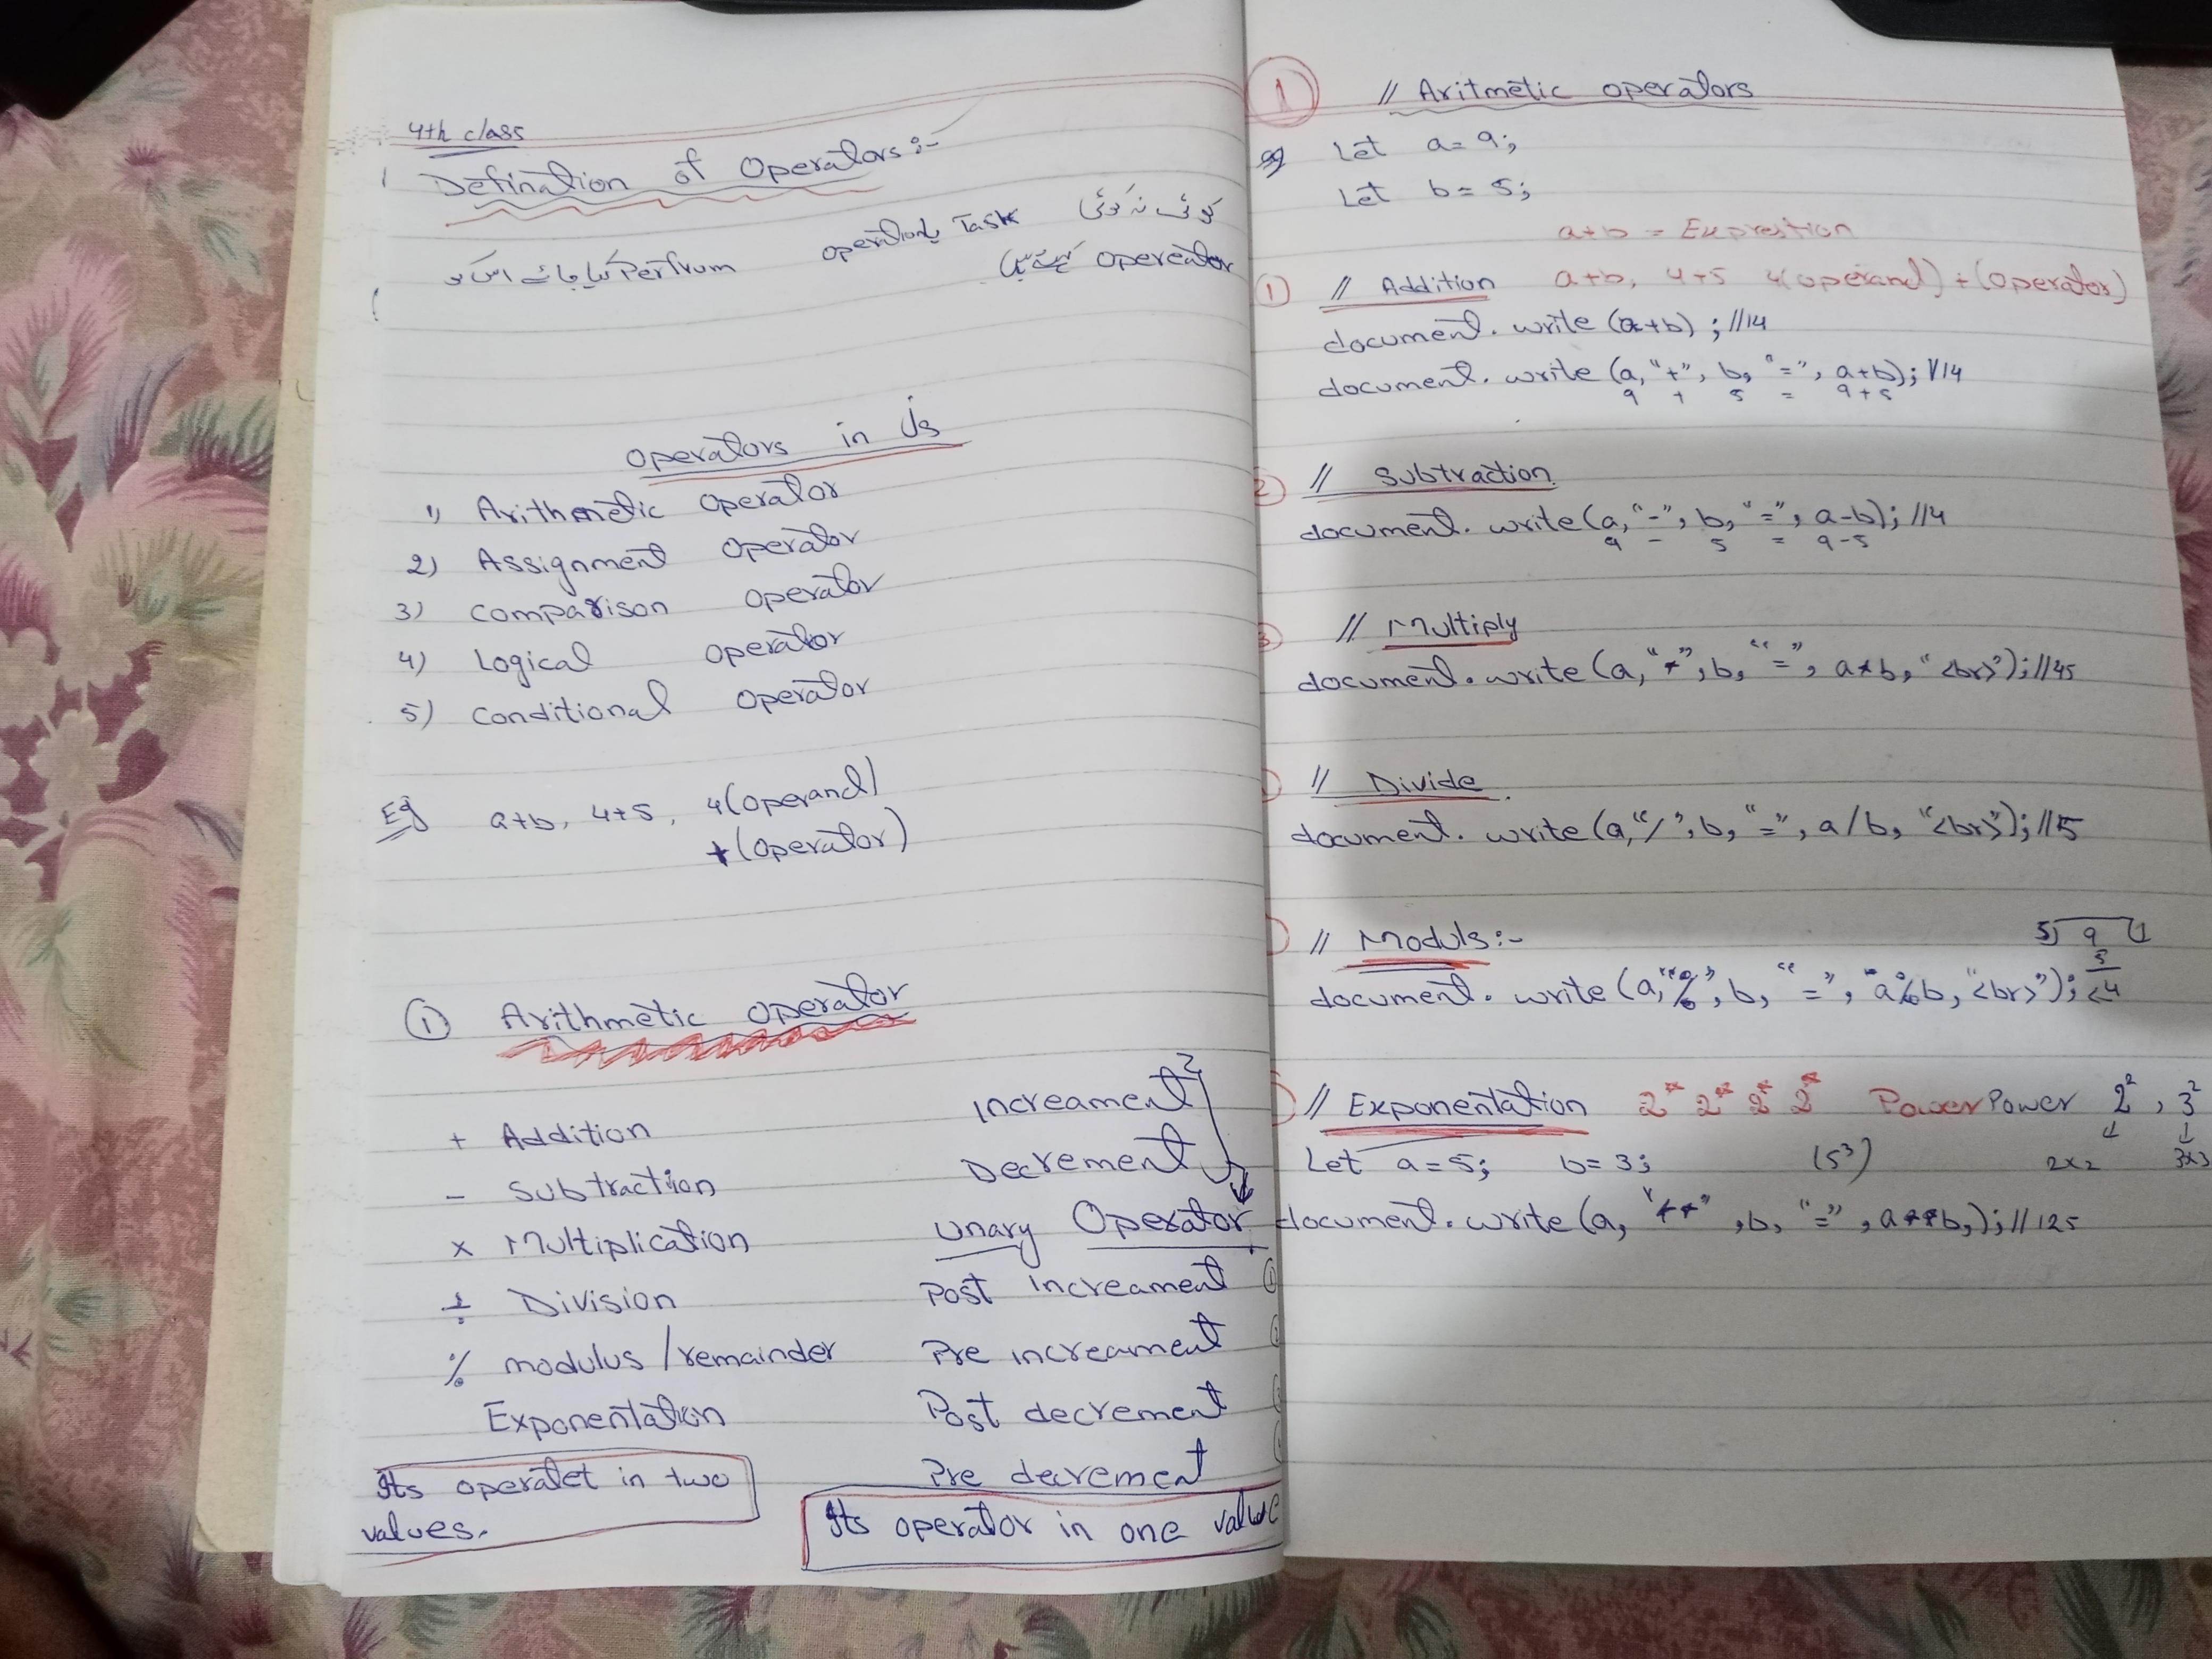 4th class
Defination of Operators:-
کوئی نہ کوئی Task یا operation
Perfrum کیا جائے اس کو
opereator کہتے ہیں
Operators in Js
1) Arithmetic Operator
2) Assignment Operator
3) comparison operator
4) Logical operator
5) conditional operator
Eg a+b, 4+5, 4(operand)
+(operator)
① Arithmetic operator
+ Addition
- Subtraction
x Multiplication
÷ Division
% modulus / remainder
Exponentation
Its operatet in two
values.
Increament
Decrement
unary Operator
Post increament ①
Pre increament
Post decrement
Pre decrement
Its operator in one value
① // Aritmetic operators
Let a = 9;
Let b = 5;
a+b = Exprestion
① // Addition a+b, 4+5 4(operand) + (Operator)
document. write (a+b) ; //14
document. write (a, "+", b, "=", a+b); //14
9 + 5 = 9+5
2) // Subtraction
document. write (a, "-", b, "=", a-b); //4
9 - 5 = 9-5
3) // Multiply
document. write (a, "*", b, "=", a*b, "<br>"); //45
// Divide
document. write (a, "/", b, "=", a/b, "<br>"); //5
// Moduls:-
5) 9 (1
5
4
document. write (a, "%", b, "=", "a%b, "<br>");
// Exponentation 2* 2* 2* 2* Power Power 2², 3²
Let a = 5; b = 3; (5³) 2x2 3x3
document. write (a, "**", b, "=", a**b,); //125